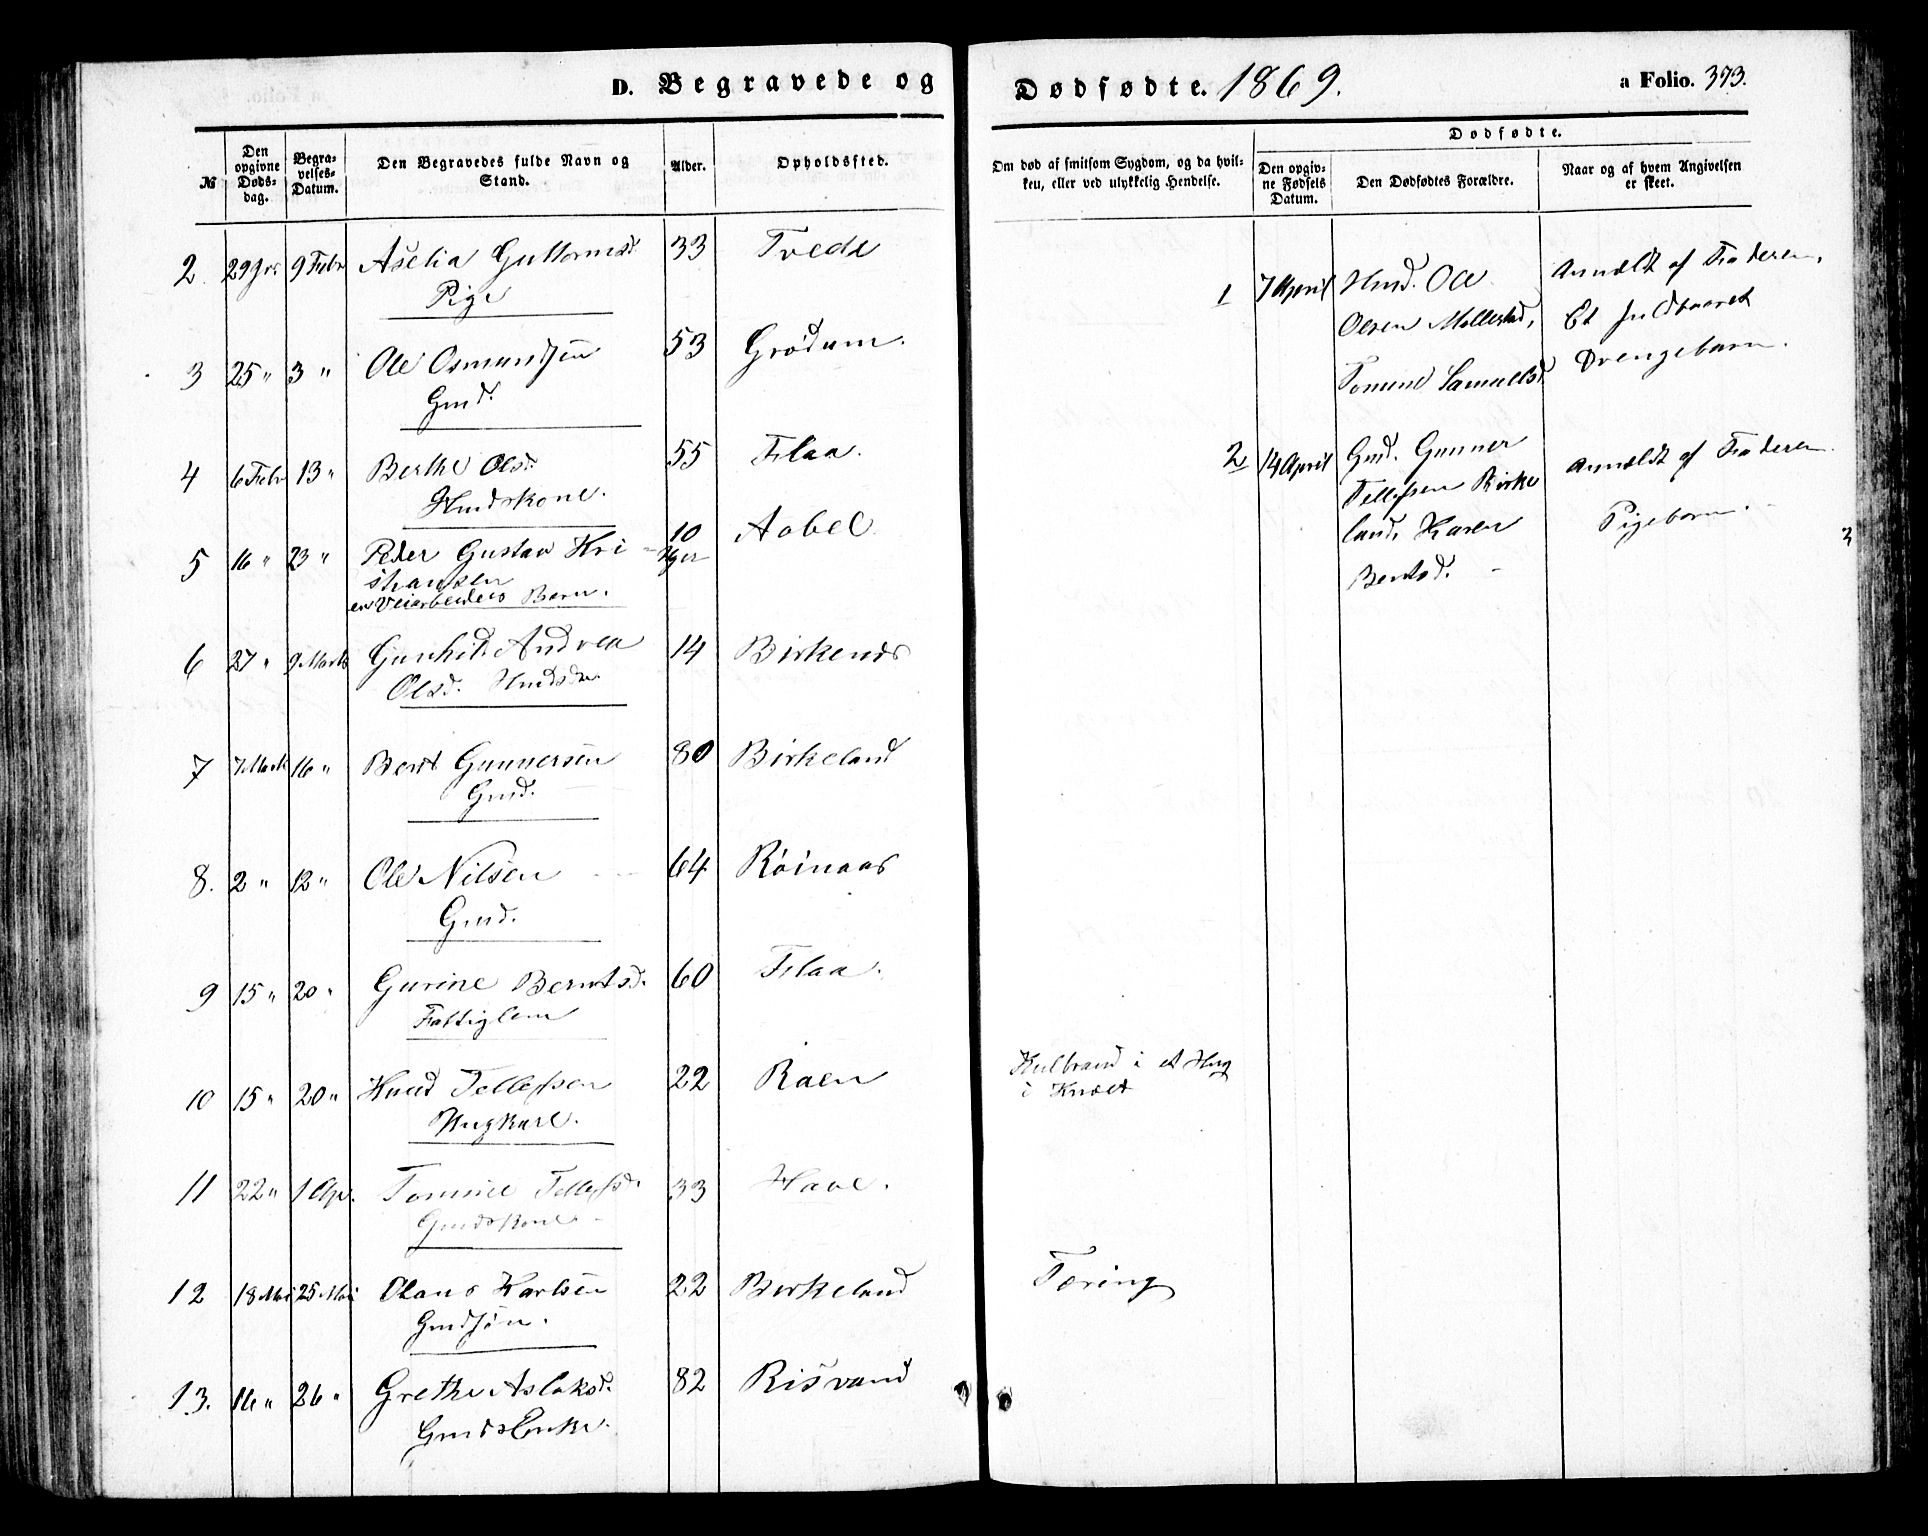 D. Begravede og
Dødfødte. 1869.
a Folio. 373.
№
Den opgivne Døds-dag.
Begra-velses-Datum.
Den Begravedes fulde Navn og Stand.
Alder.
Opholdssted.
Om død af smitsom Sygdom, og da hvil-
ken, eller ved ulykkelig Hendelse.
Dødfødte.
Den opgiv-ne Fødsels Datum.
Den Dødfødtes Forældre.
Naar og af hvem Angivelsen er skeet.
2. 29 9 Febr Aselia Guttormsd. 33 Trede
Pige
3 25 " 3 " Ole Osmundsen 53 Grødum.
Gmd.
4 6 Febr 13 " Berthe Olsd. 55 Flaa.
Hmdskone.
5 16 " 23 " Peder Gustav Kri- 10 Aabel
stiansen Uger
en Veiarbeiders Barn.
6 27 " 9 Marts Gunhild Andrea 14 Birkenes
Olsd. Hmdsdr.
7 7 Marts 16 " Bent Gunnersen 80 Birkeland
Gmd.
8. 2 " 12 " Ole Nilsen 64 Røinaas
Gmd.
9 15 " 20 " Gurine Berntsd. 60 Flaa.
Fattiglem
10 15 " 20 " Knud Tellefsen 22 Raen
Ungkarl.
11 22 " 1 Apr. Tomine Tellefsd. 33 Have.
Gmdskone
12 18 Mai 25 Mai Olaus Karlsen 22 Birkeland
Gmdsøn.
13. 16 " 26 " Grethe Aslaksd. 82 Risvand
Gmds Enke.
i Knæet
Tæring
1 7 April Hmd. Ole Anmeldt af Faderen,
Olsen Mollestad, Et fuldbaaret
Tomine Samuelsd. Drengebarn.
2 14 April Gmd. Gunner Anmeldt af Faderen.
Tellefsen Birke Pigebarn.
land, Karen
Bentsd.